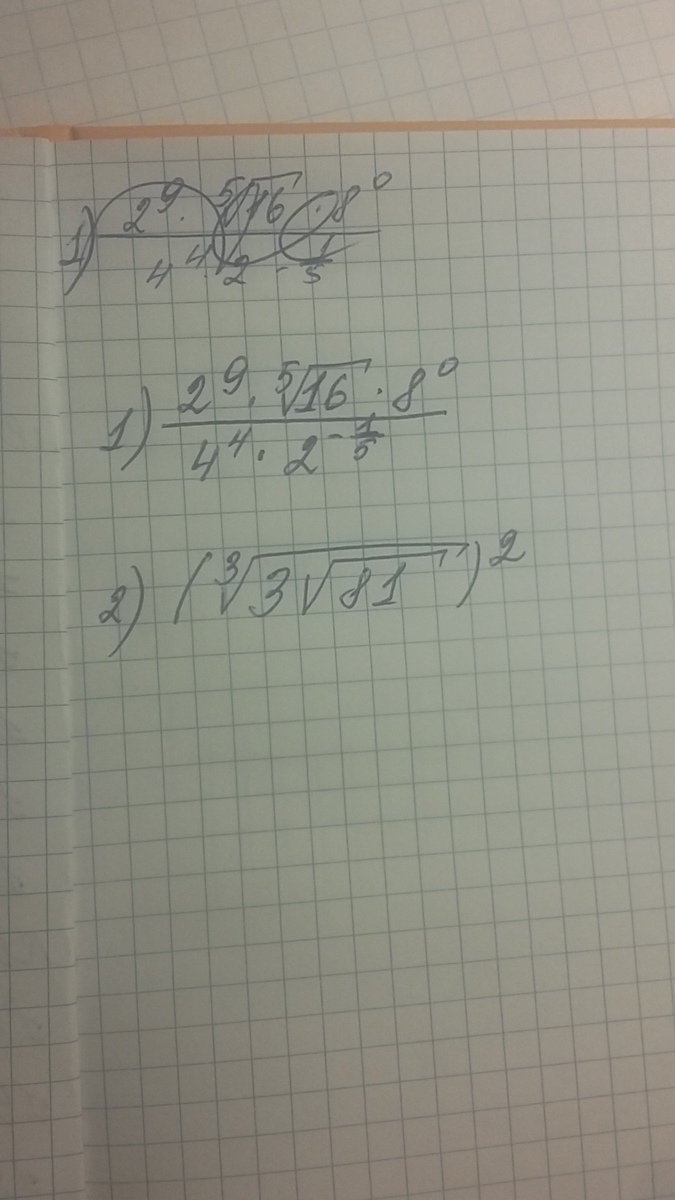 1) (2^9 · ⁵√16 · 8^0) / (4^4 · 2^(-1/5))
1) (2^9 · ⁵√16 · 8^0) / (4^4 · 2^(-1/5))
2) (³√(3√81))^2